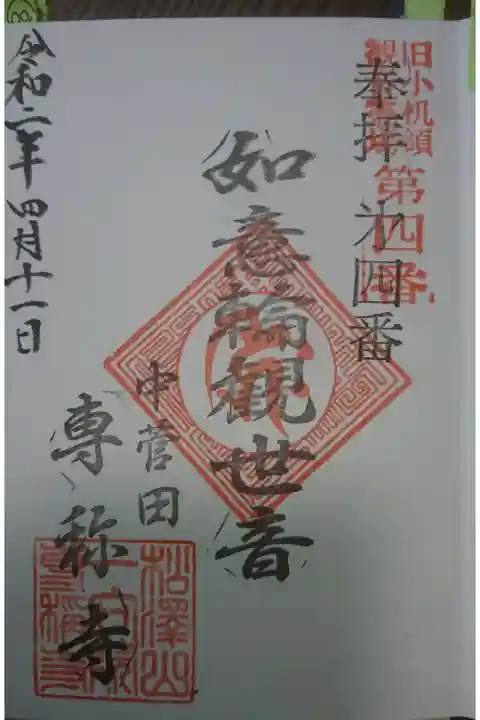 旧小机領
観音霊場
第四番
奉拝 㐧四番
如意輪観世音
中菅田
専称寺
令和二年四月十一日
松澤山